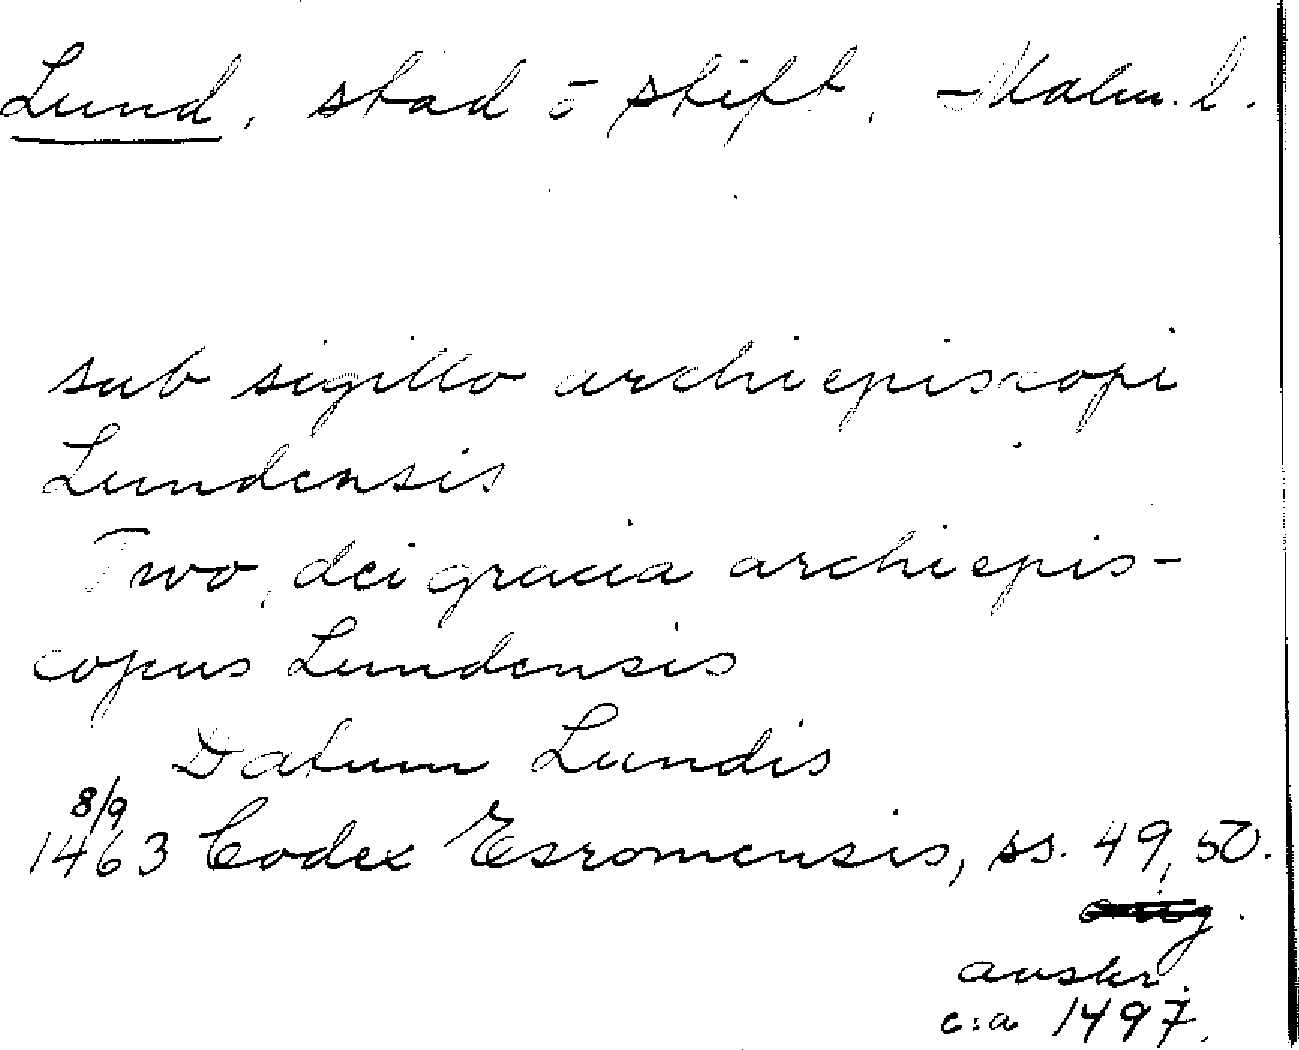 Lund, stad o stift, Malm. l.
sub sigillo archiepiscopi
Lundensis
Two, dei gracia archiepis-
copus Lundensis
Datum Lundis
8/9
1463 Codex Esromensis, ss. 49, 50.
avskr.
c:a 1497.